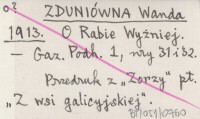 o?
ZDUNIÓWNA Wanda
1913. O Rabie Wyżniej.
— Gaz. Podh. 1, nry 31 i 32.
Przedruk z „Zorzy” pt.
„Z wsi galicyjskiej”.